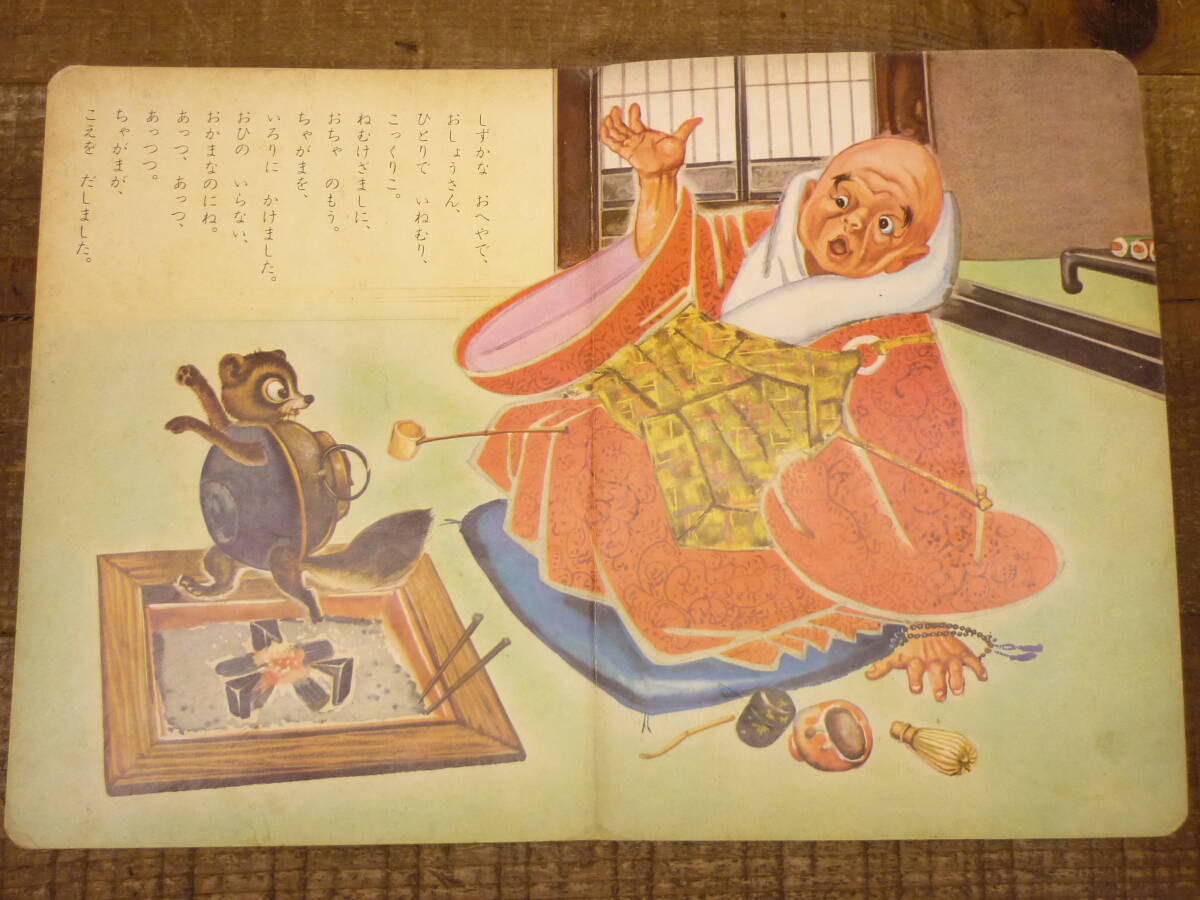 しずかな　おへやで、
おしょうさん、
ひとりで　いねむり、
こっくりこ。
ねむけざましに、
おちゃ　のもう。
ちゃがまを、
いろりに　かけました。
おひの　いらない、
おかまなのにね。
あっつ、あっつ、
あっつつ。
ちゃがまが、
こえを　だしました。